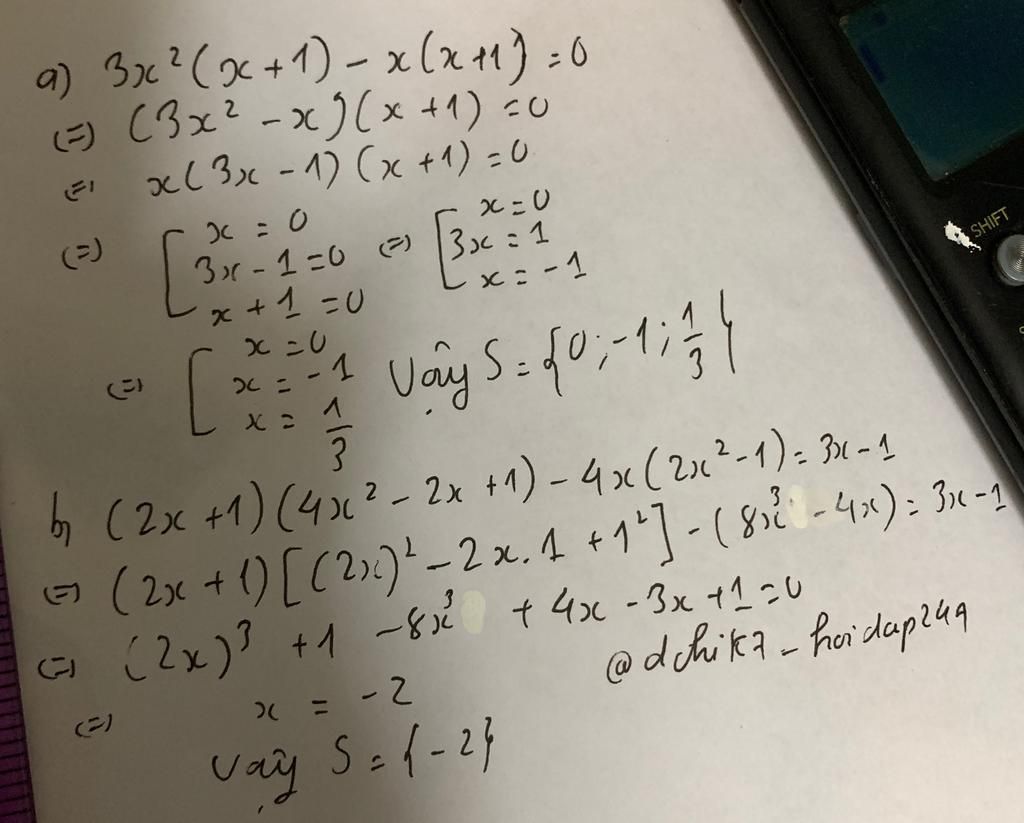 a) 3x²(x+1) - x(x+1) = 0
(=) (3x² - x)(x+1) = 0
(=) x(3x - 1)(x+1) = 0
(=) [ x = 0 (=) [ x = 0
3x - 1 = 0 3x = 1
x + 1 = 0 x = -1
(=) [ x = 0
x = -1 Vậy S = {0; -1; 1/3}
x = 1/3
b) (2x+1)(4x² - 2x + 1) - 4x(2x² - 1) = 3x - 1
(=) (2x+1)[(2x)² - 2x.1 + 1²] - (8x³ - 4x) = 3x - 1
(=) (2x)³ + 1 - 8x³ + 4x - 3x + 1 = 0
(=) x = -2
@dchik7_hoidap247
Vậy S = {-2}
SHIFT